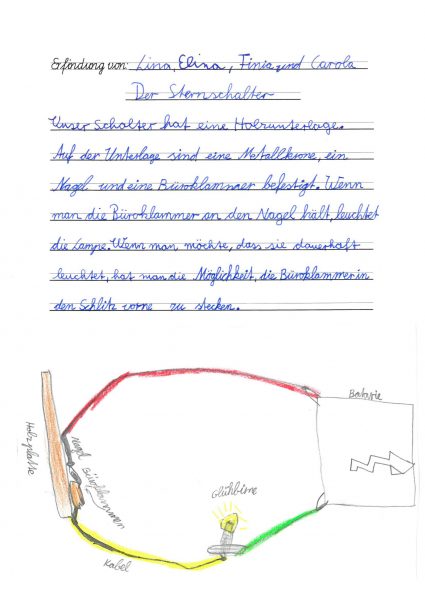 Erfindung von: Lina, Elina, Finia und Carola
Der Sternschalter
Unser Schalter hat eine Holzunterlage.
Auf der Unterlage sind eine Metallkrone, ein
Nagel und eine Büroklammer befestigt. Wenn
man die Büroklammer an den Nagel hält, leuchtet
die Lampe. Wenn man möchte, dass sie dauerhaft
leuchtet, hat man die Möglichkeit, die Büroklammer in
den Schlitz vorne zu stecken.
Batterie
Holzplatte
Nagel
Büroklammern
Glühbirne
Kabel